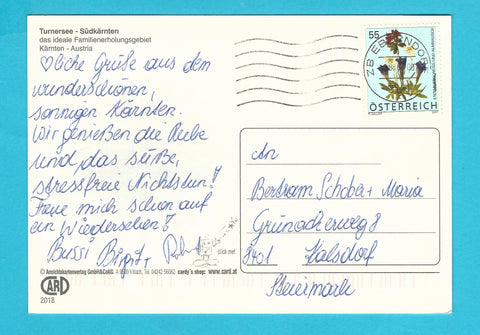 Turnersee - Südkärnten
das ideale Familienerholungsgebiet
Kärnten - Austria
♡liche Grüße aus dem
wunderschönen,
sonnigen Kärnten.
Wir genießen die Ruhe
und das süße,
stressfreie Nichtstun!
Freue mich schon auf
ein Wiedersehen!
Bussi Birgit +
click me!
© Ansichtskartenverlag GmbH&CoKG. Villach, Tel. 04242 cardy's shop: www.card.at
CARD
2018
55
ZB EBERNDORF
ÖSTERREICH
An
Bertram Schober + Maria
8401 Kalsdorf
Steiermark